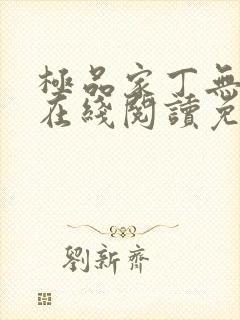 極品家丁無
在綫閱讀免
劉新齊